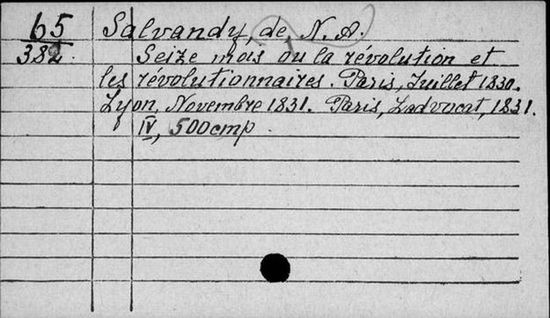 65
382.
Salvandy, de N. A.
Seize mois ou la révolution et
les révolutionnaires. Paris, Juillet 1830.
Lyon, Novembre 1831. Paris, Ladvocat, 1831.
IV, 500 cmp.